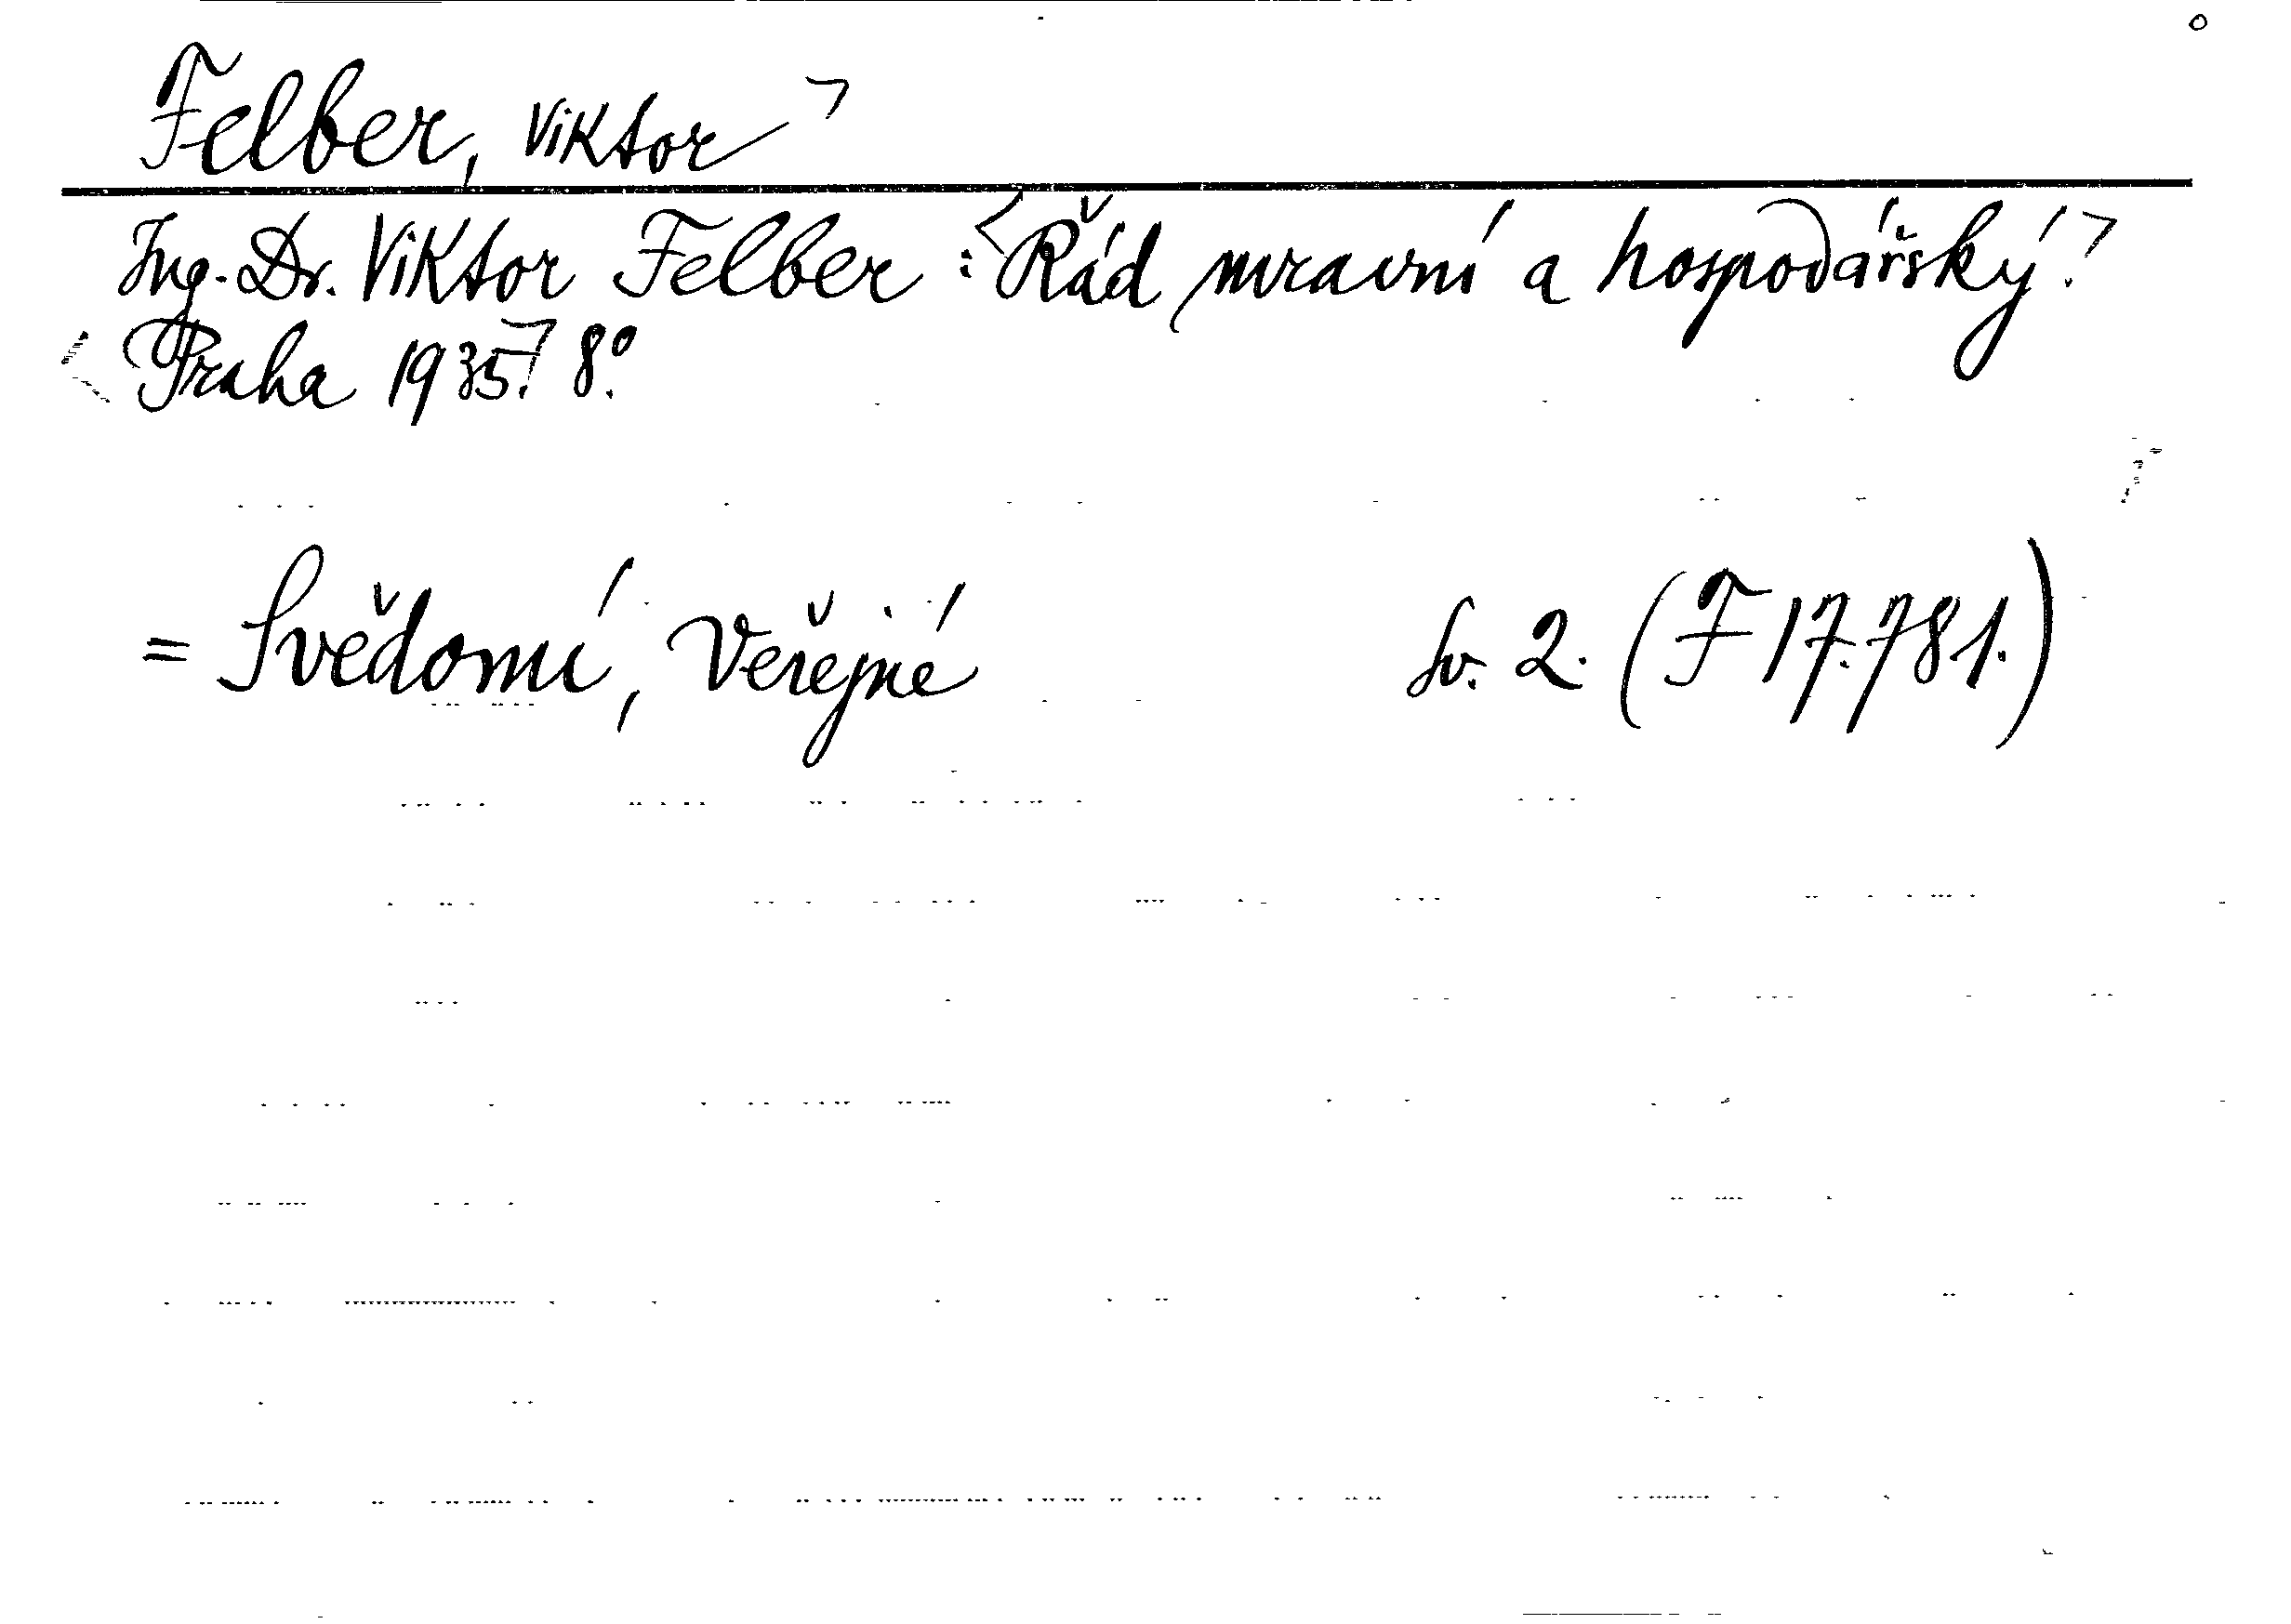 Felber, Viktor
Ing. Dr. Viktor Felber: Řád mravní a hospodářský.
Praha 1935. 8°.
= Svědomí, Veřejné sv. 2. (F 17.781.)